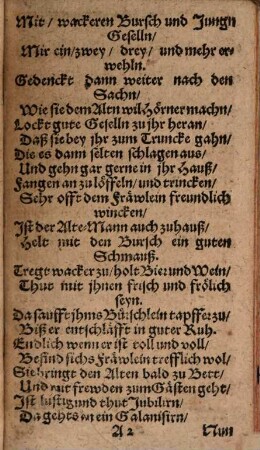 Mit / wackeren Bursch und Jungn
Geselln /
Mir ein / zwey / drey / und mehr er-
wehln.
Gedenckt dann weiter nach den
Sachn /
Wie sie dem Altn wil Hörner machn /
Lockt gute Geselln zu jhr heran /
Daß sie bey jhr zum Truncke gahn /
Die es dann selten schlagen aus /
Und gehn gar gerne in jhr Hauß /
Fangen an zu löffeln / und trincken /
Sehr offt dem Fräwlein freundlich
wincken /
Ist der Alte Mann auch zu hauß /
Helt mit den Bursch ein guten
Schmauß.
Tregt wacker zu / holt Bier und Wein /
Thut mit jhnen frisch und frölich
seyn.
Da saufft jhms Bürschlein tapffer zu /
Biß er entschläfft in guter Ruh.
Endlich wenn er ist toll und voll /
Befind sichs Fräwlein trefflich wol /
Sie bringt den Alten bald zu Bett /
Und mit frewden zum Gästen geht /
Ist lustig und thut Jubilirn /
Da gehts an ein Galanisirn /
A 2 Nun